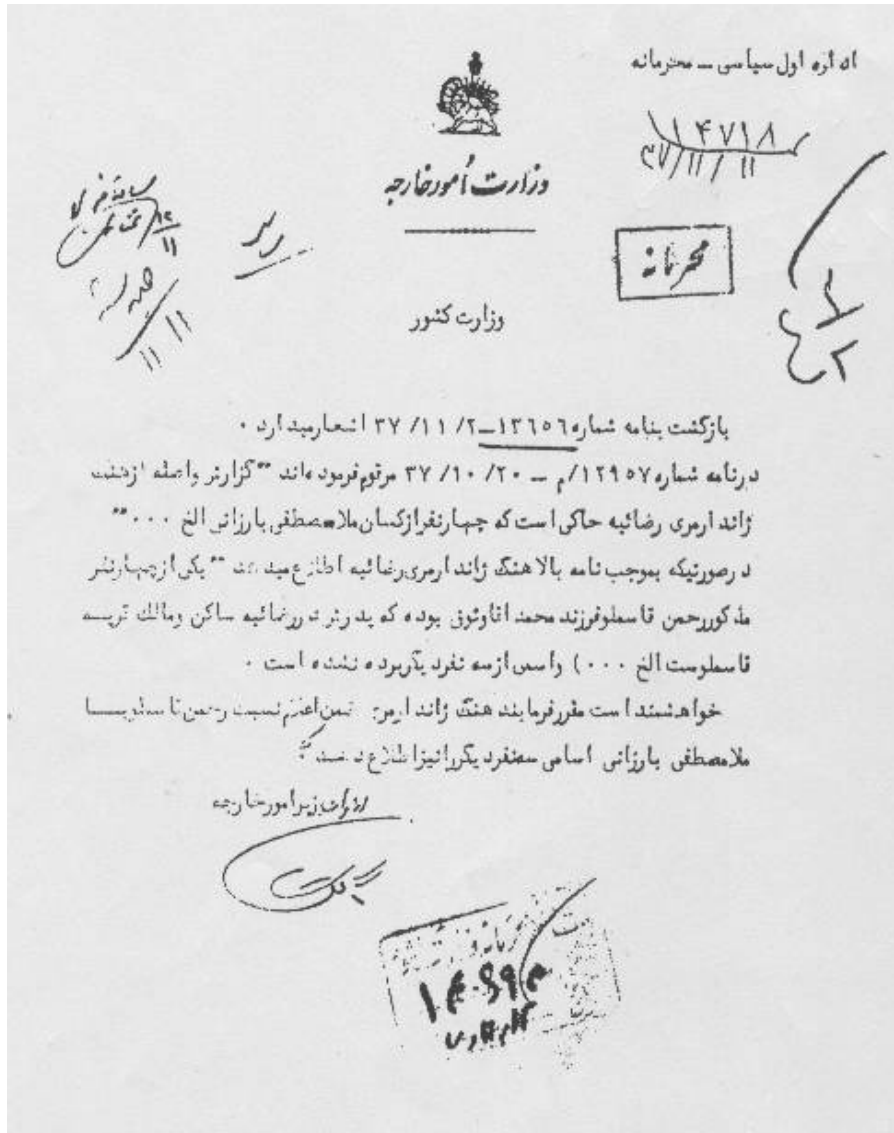 اداره اول سیاسی – محترمانه
۱۴۷۱۸
۳۷/۱۱/۱۱
وزارت امور خارجه
محرمانه
وزارت کشور
بازگشت بنامه شماره ۱۳٦٥٦–۲/ ۱۱/ ۳۷ اشعار میدارد .
درنامه شماره ۱۲۹٥۷/م – ۲۰/ ۱۰/ ۳۷ مرقوم فرموده اند " گزارش واصله از هنگ
ژاندارمری رضائیه حاکی است که چهارنفر از کسان ملا مصطفی بارزانی الخ ۰۰۰ "
در صورتیکه بموجب نامه بالا هنگ ژاندارمری رضائیه اطلاع میدهد " یکی از چهارنفر
مذکور رحمن قاسملو فرزند محمد اقاوثوق بوده که پدرش در رضائیه ساکن ومالک قریه
قاسملوست الخ ۰۰۰ ) واسمی از سه نفر دیگر برده نشده است .
خواهشمند است مقرر فرمایند هنگ ژاندارمری ضمن اعلام نسبت رحمن قاسملو بـــا
ملامصطفی بارزانی اسامی سه نفر دیگر را نیز اطلاع دهد
وزیر امور خارجه